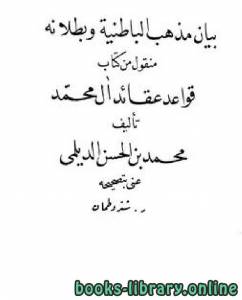 بيان مذهب الباطنية وبطلانه
منقول من كتاب
قواعد عقائد آل محمد
تأليف
محمد بن الحسن الديلمي
عنى بتصحيحه
ر. شتروطمان
books-library.online